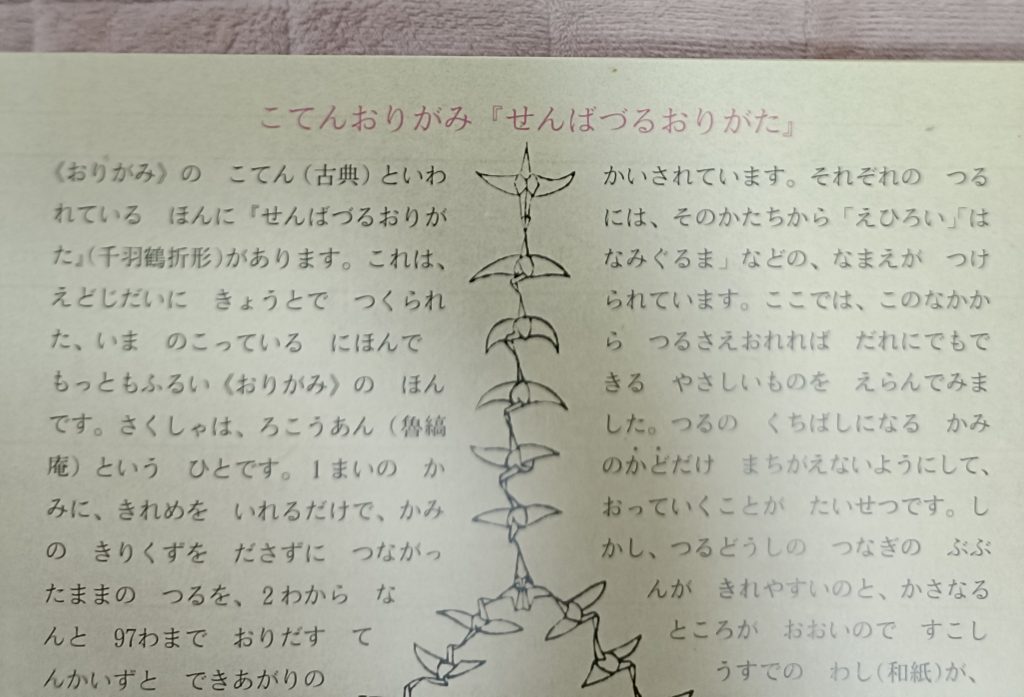 こてんおりがみ『せんばづるおりがた』
《おりがみ》の　こてん（古典）といわ
れている　ほんに『せんばづるおりが
た』（千羽鶴折形）があります。これは、
えどじだいに　きょうとで　つくられ
た、いま　のこっている　にほんで
もっともふるい《おりがみ》の　ほん
です。さくしゃは、ろこうあん（魯縞
庵）という　ひとです。1まいの　か
みに、きれめを　いれるだけで、かみ
の　きりくずを　ださずに　つながっ
たままの　つるを、2わから　な
んと　97わまで　おりだす　て
んかいずと　できあがりの
かいされています。それぞれの　つる
には、そのかたちから「えひろい」「は
なみぐるま」などの、なまえが　つけ
られています。ここでは、このなかか
ら　つるさえおれれば　だれにでもで
きる　やさしいものを　えらんでみま
した。つるの　くちばしになる　かみ
のかどだけ　まちがえないようにして、
おっていくことが　たいせつです。し
かし、つるどうしの　つなぎの　ぶぶ
んが　きれやすいのと、かさなる
ところが　おおいので　すこし
うすでの　わし（和紙）が、